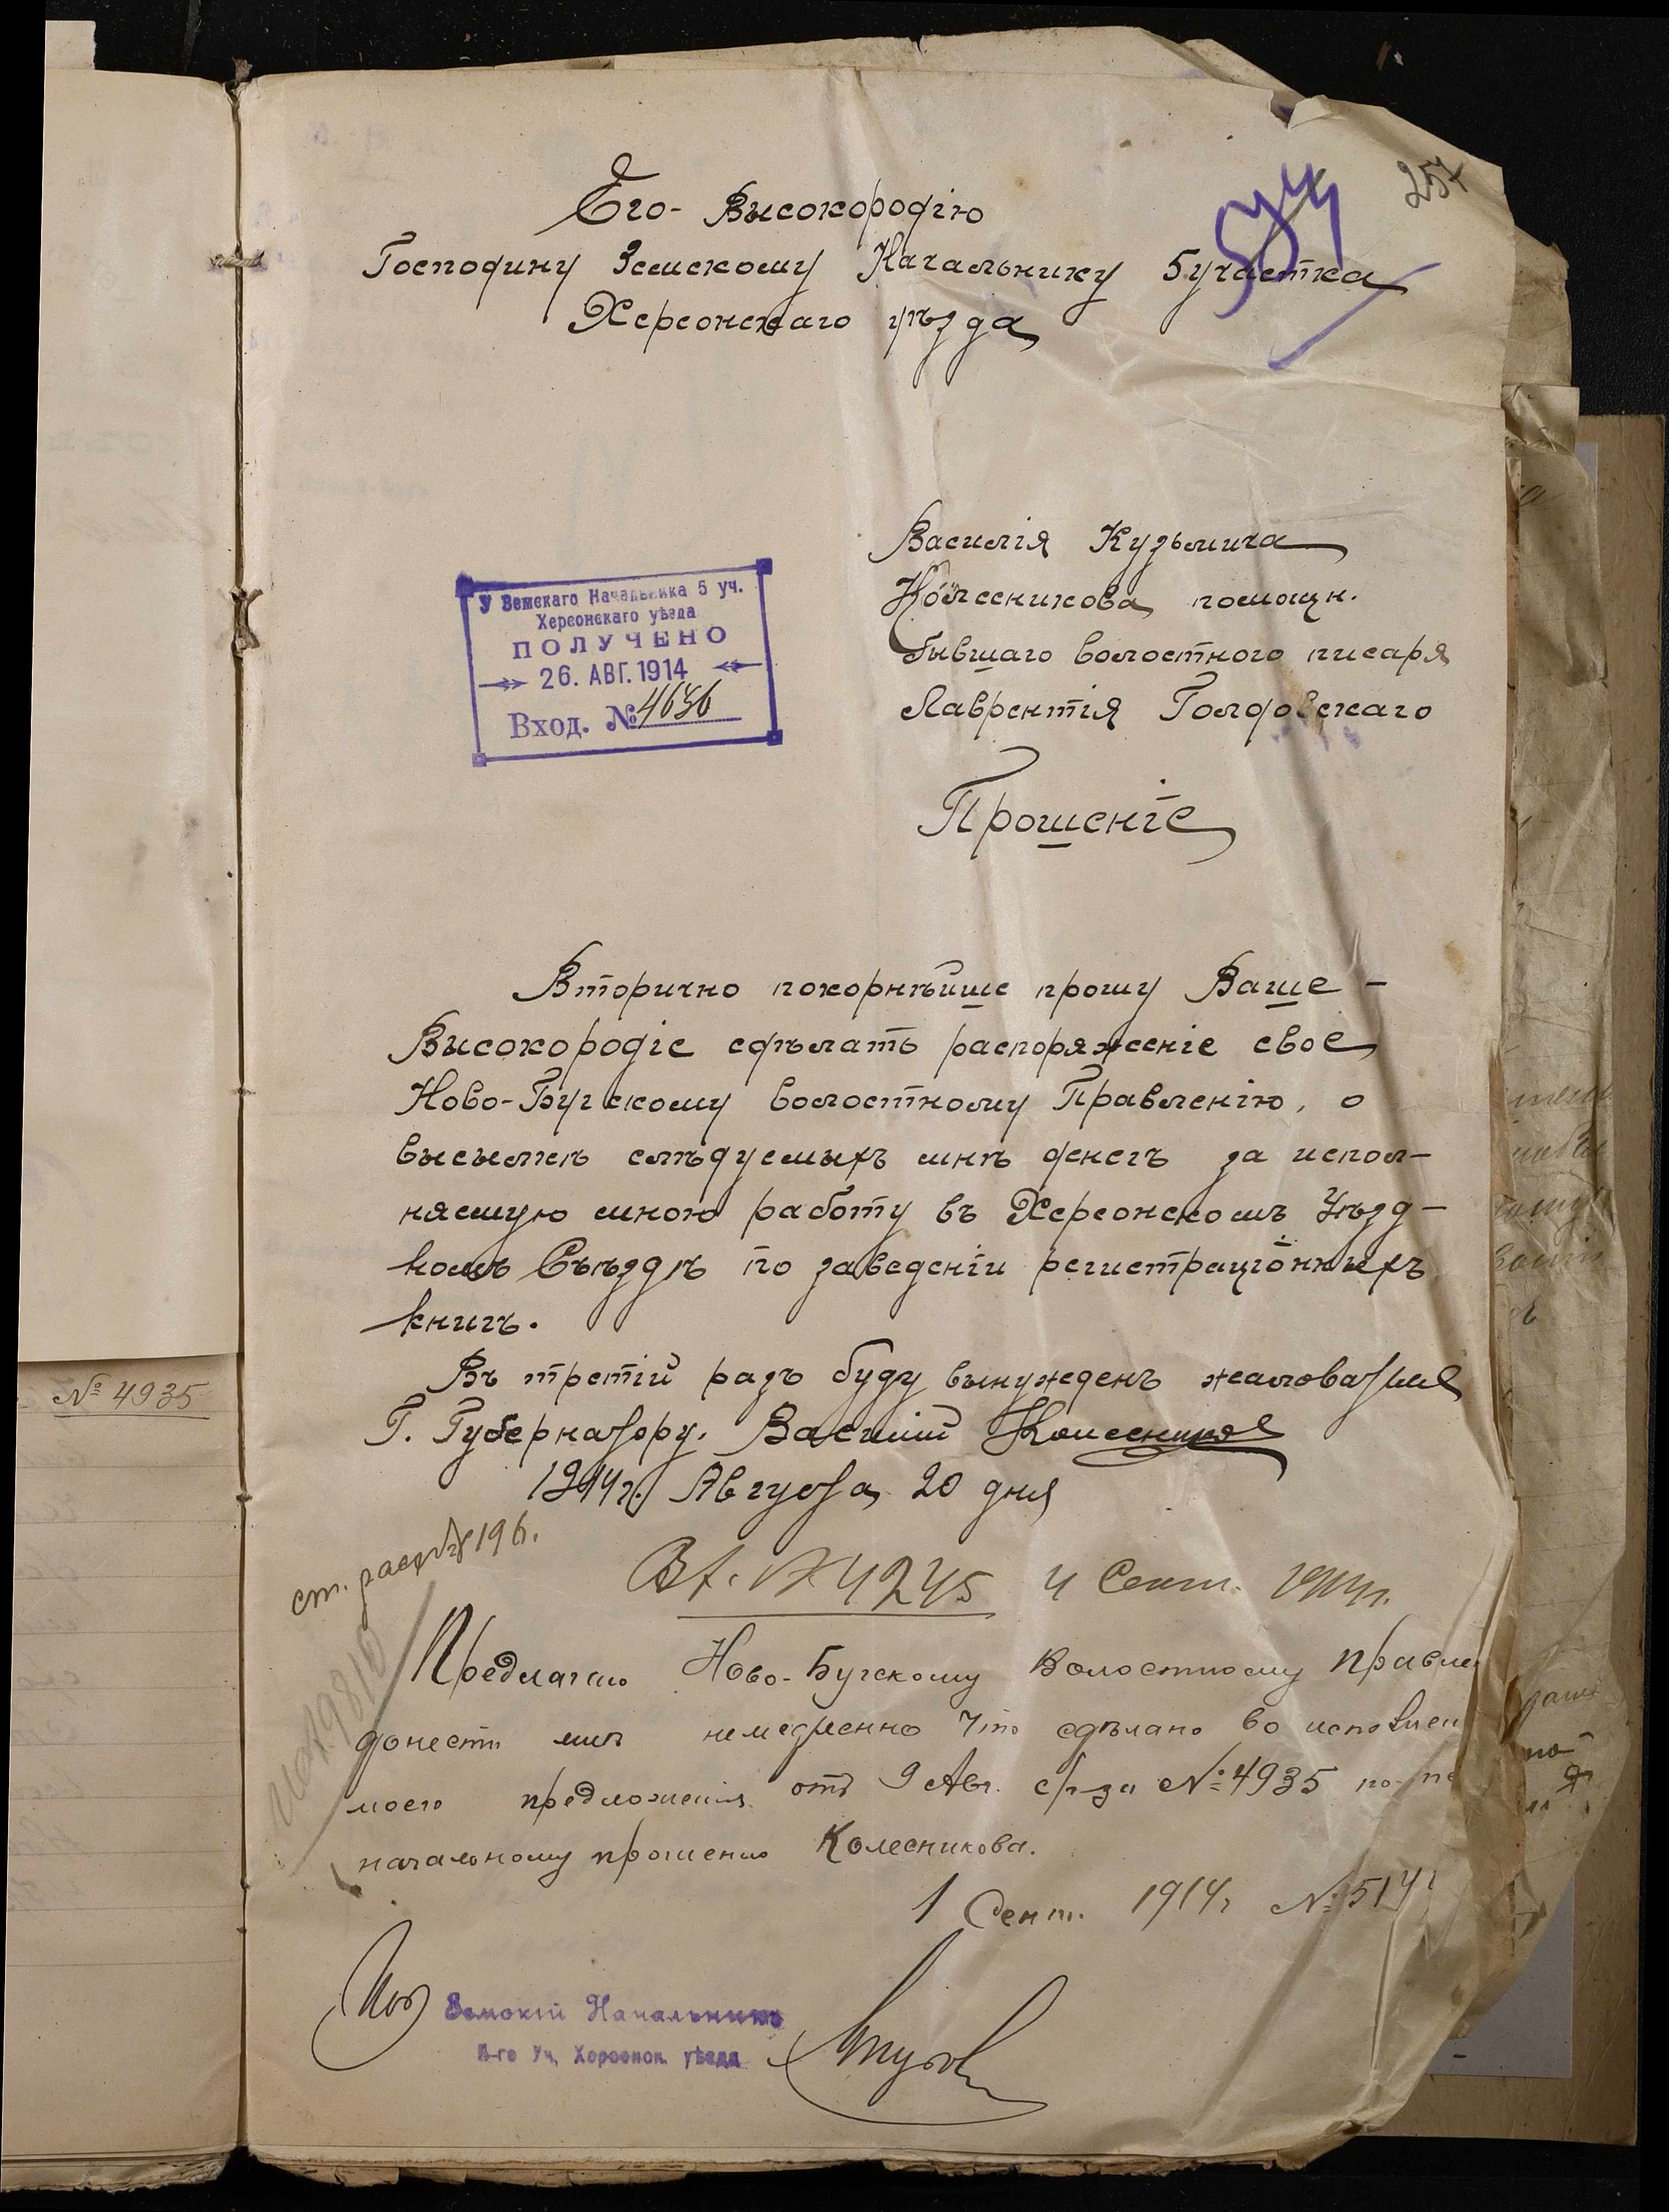 257
Его-Высокородію
Господину Земскому Начальнику 5 участка
Херсонскаго уѣзда
У Земскаго Начальника 5 уч.
Херсонскаго уѣзда
ПОЛУЧЕНО
26. АВГ. 1914
Вход. № 4636
Василія Кузьмича
Колесникова помощн.
бывшаго волостного писаря
Лаврентія Голдовскаго
Прошеніе
Вторично покорнѣйше прошу Ваше-
Высокородіе сдѣлать распоряженіе свое
Ново-Бугскому волостному Правленію, о
высылкѣ слѣдуемыхъ мнѣ денегъ за испол-
няемую мною работу въ Херсонскомъ Уѣзд-
номъ Съѣздѣ по заведеніи регистраціонныхъ
книгъ.
Въ третій разъ буду вынужденъ жаловаться
Г. Губернатору. Василий Колесников
1914 г. Августа 20 дня
196.
Вх. № 4245 4 Сент. 1914 г.
Предлагаю Ново-Бугскому Волостному Правлен
донести мнѣ немедленно что сдѣлано во исполнен
моего предложенія отъ 9 Авг. с/г за № 4935 по пе
начальному прошенію Колесникова.
1 Сент. 1914 г №514
Земскій Начальникъ
5-го Уч. Херсонск. уѣзда
№ 4935